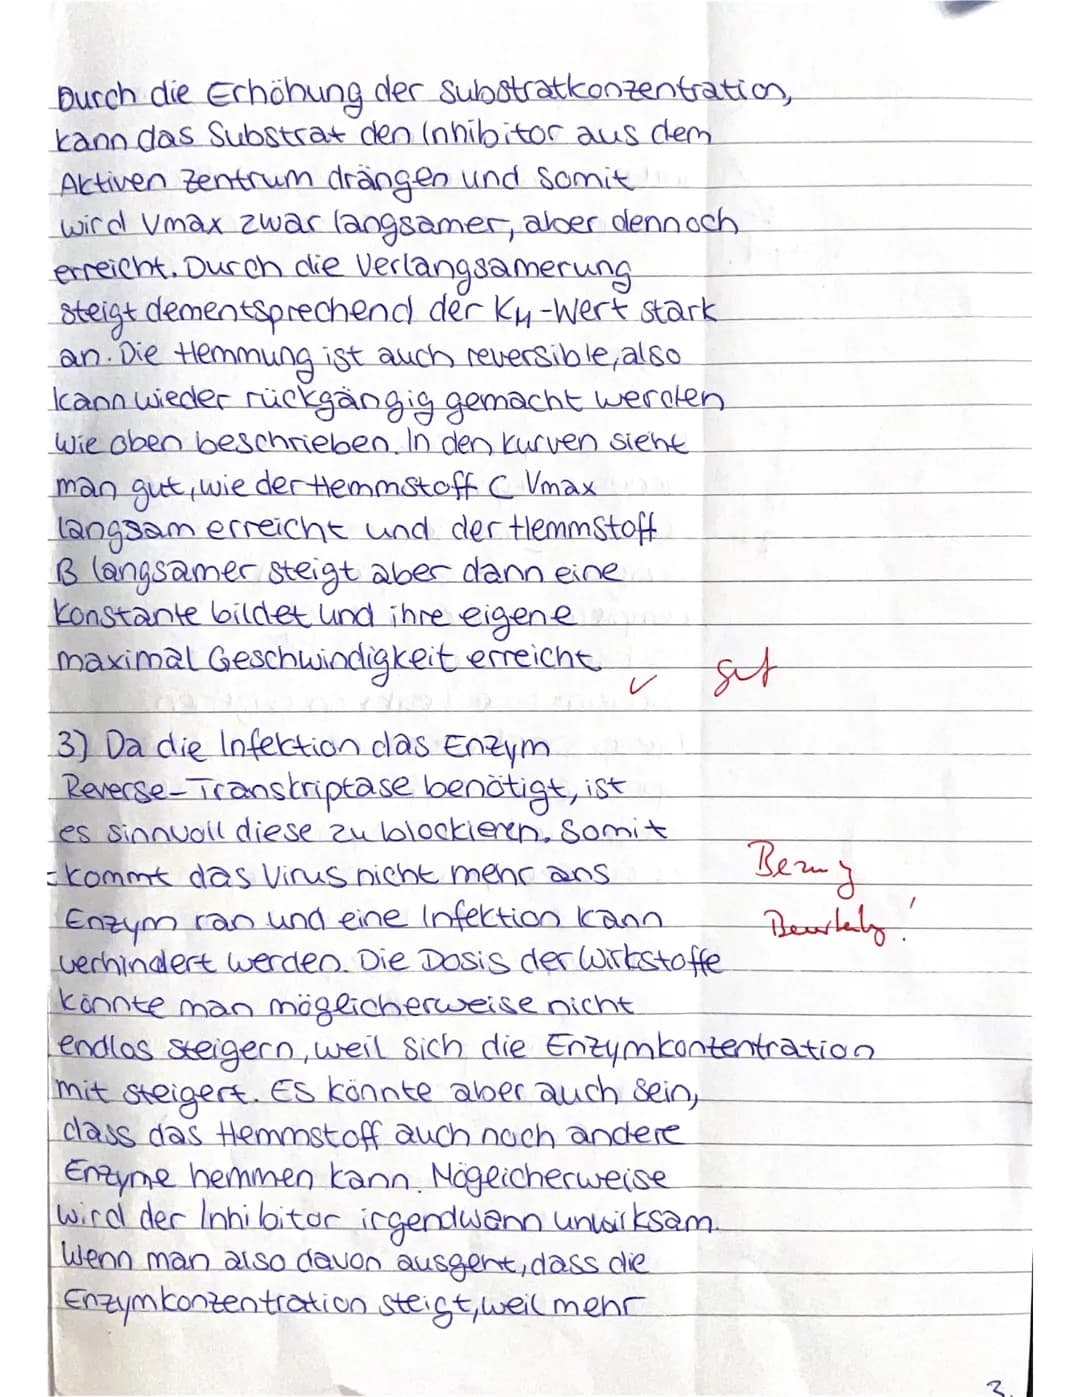 Durch die Erhöhung der Substratkonzentration,
kann das Substrat den Inhibitor aus dem
Aktiven Zentrum drängen und somit
wird Vmax zwar langsamer, aber dennoch
erreicht. Durch die Verlangsamerung
steigt dementsprechend der KM-Wert stark
an. Die Hemmung ist auch reversible, also
kann wieder rückgängig gemacht werden
wie oben beschrieben. In den Kurven sieht
man gut, wie der Hemmstoff C Vmax
langsam erreicht und der Hemmstoff
B langsamer steigt aber dann eine
Konstante bildet und ihre eigene
maximal Geschwindigkeit erreicht.
✓ gut
3) Da die Infektion das Enzym
Reverse-Transkriptase benötigt, ist
es sinnvoll diese zu blockieren. Somit
kommt das Virus nicht mehr ans
Bezug
Enzym ran und eine Infektion kann
verhindert werden. Die Dosis der Wirkstoffe
könnte man möglicherweise nicht
endlos steigern, weil sich die Enzymkontentration
mit steigert. Es könnte aber auch sein,
dass das Hemmstoff auch noch andere
Enzyme hemmen kann. Mögeicherweise
wird der Inhibitor irgendwann unwirksam.
Wenn man also davon ausgeht, dass die
Enzymkonzentration steigt, weil mehr
3.